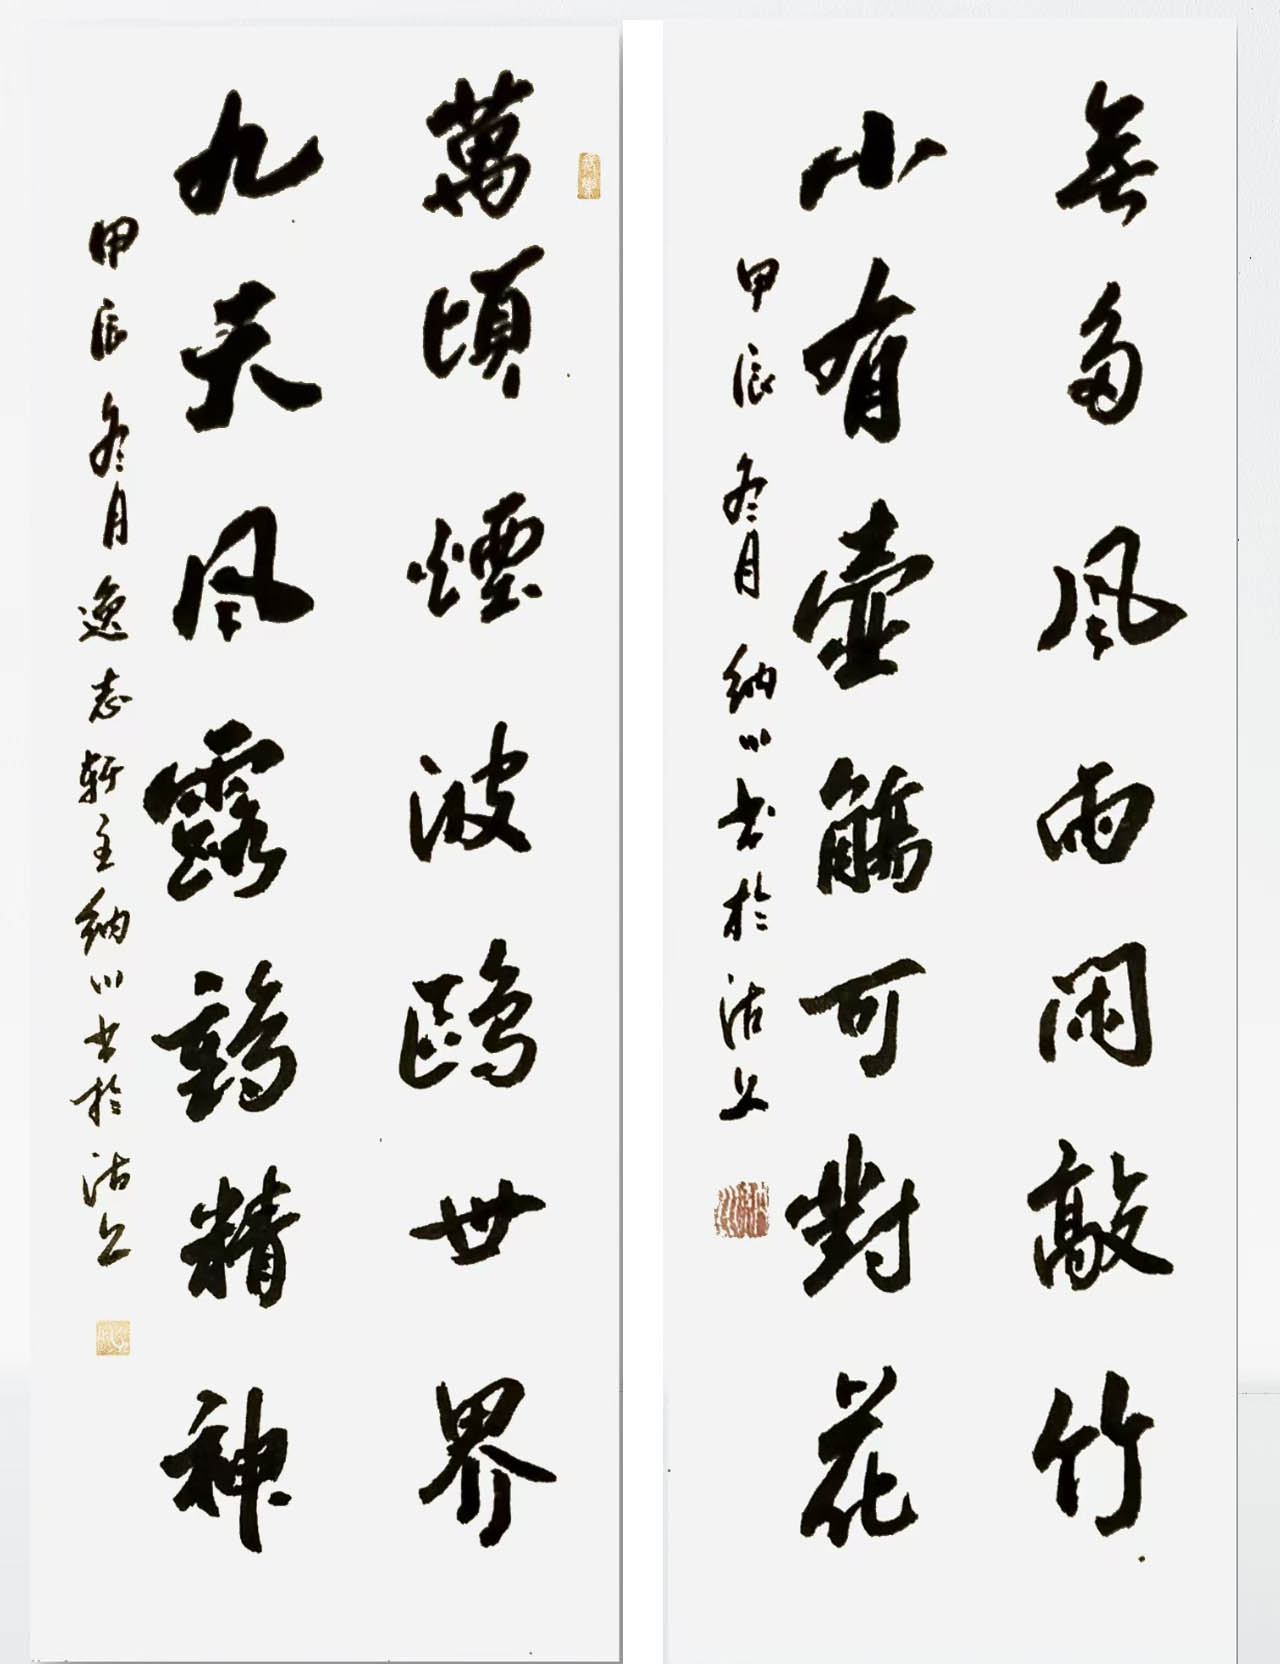 無多風雨閑敲竹
小有壺觴可對花
甲辰冬月納川書於沽上
萬頃煙波鷗世界
九天風露鶴精神
甲辰冬月逸志軒主納川書於沽上